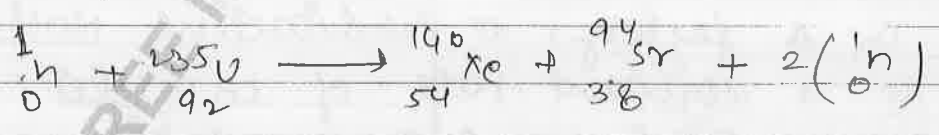 ¹₀n + ²³⁵₉₂U ⟶ ¹⁴⁰₅₄Xe + ⁹⁴₃₈Sr + 2(¹₀n)